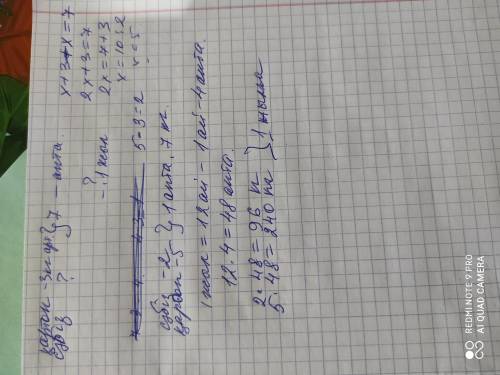 картоп - 3кг ар } 7 - апта.
сәбіз ?
? - 1 жыл
x+3+x=7
2x+3=7
2x=7+3
x=10:2
x=5
5-3=2
сәбіз - 2 } 1 апта. 7 кг.
картоп - 5
1 жыл = 12 ай - 1 ай - 4 апта.
12·4=48 апта.
2·48=96 кг } 1 жылда
5·48=240 кг
REDMI NOTE 9 PRO
AI QUAD CAMERA